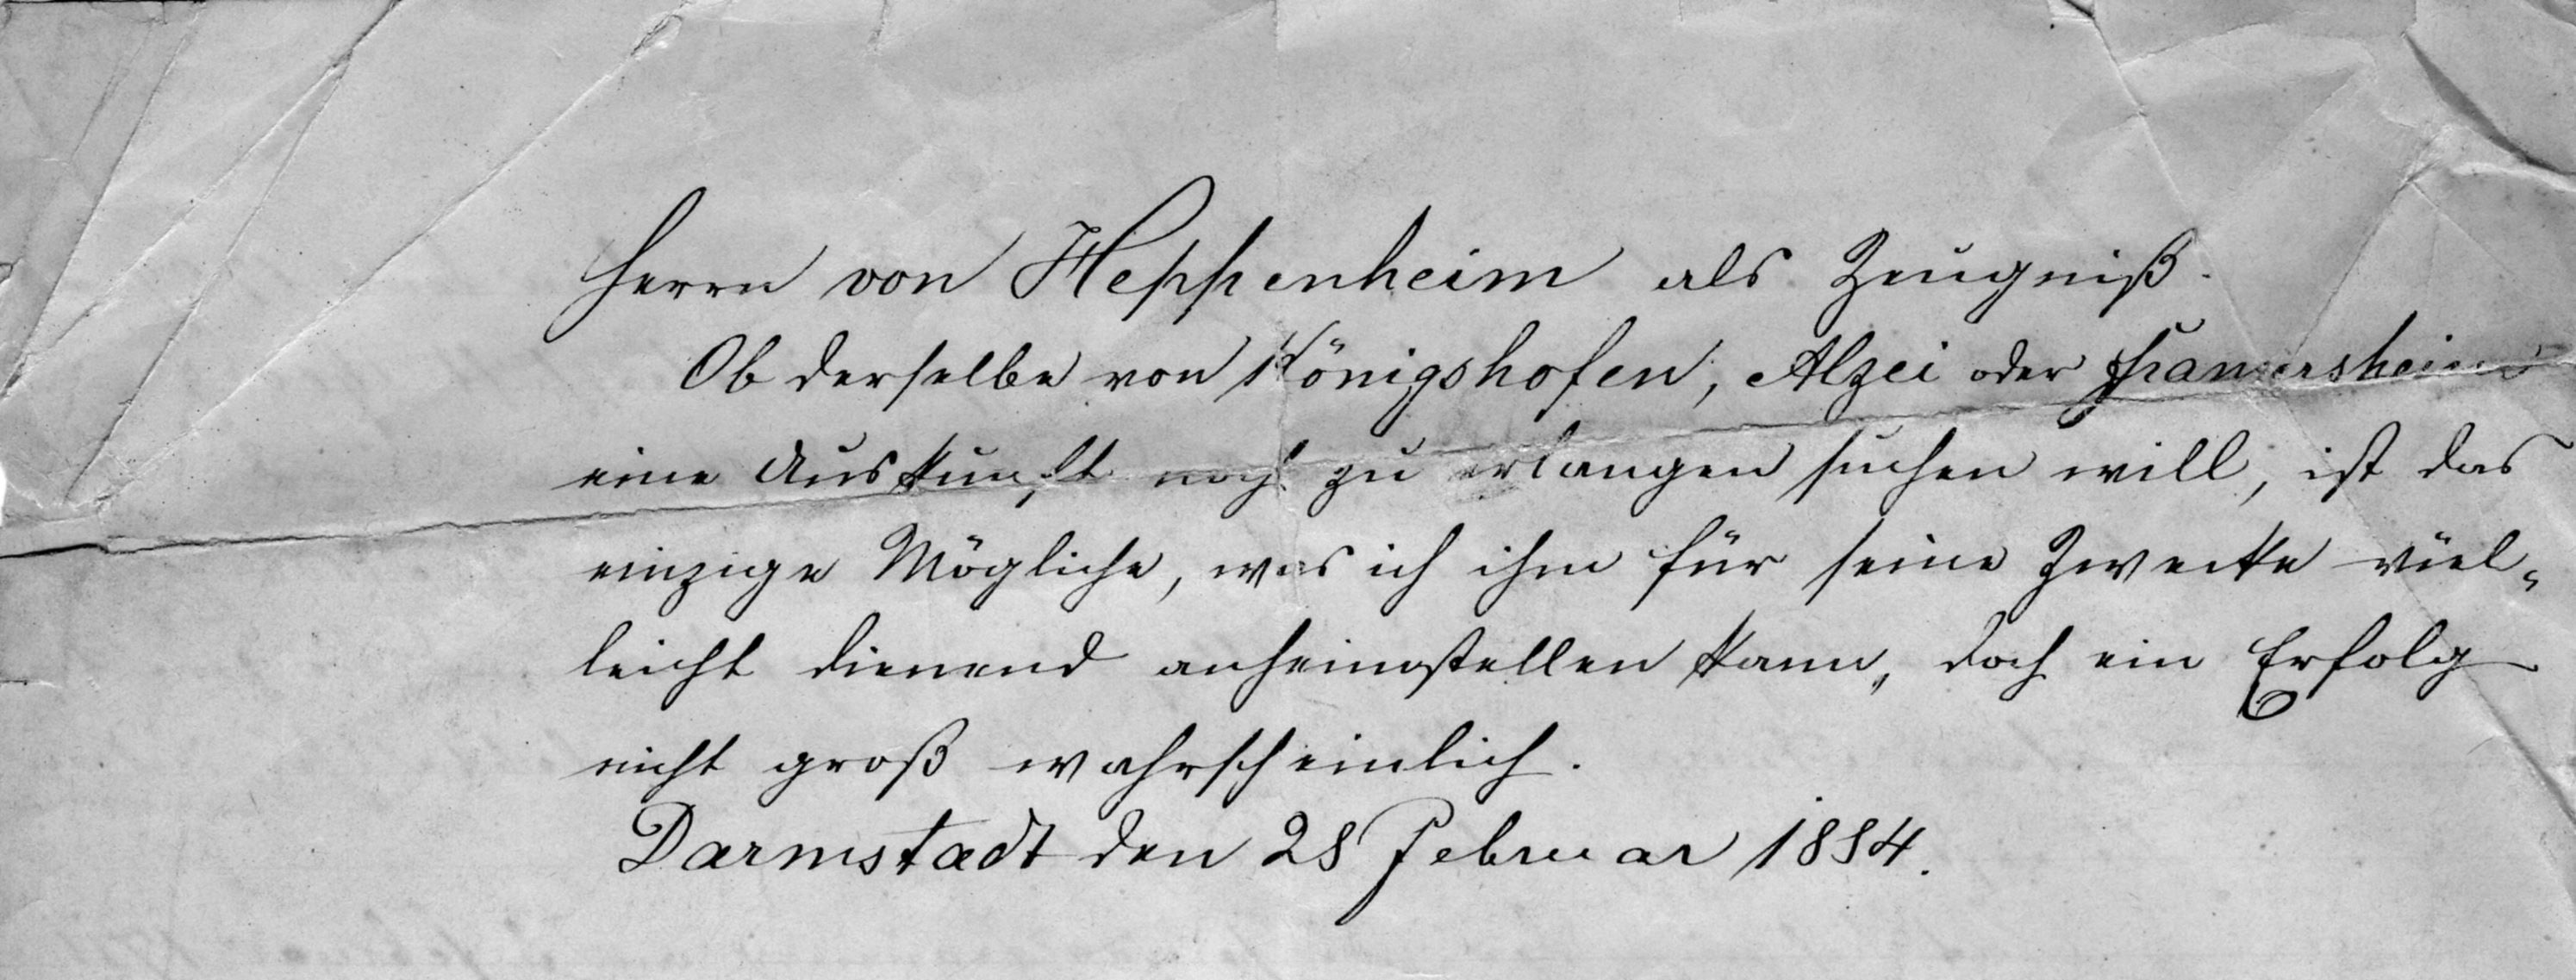 Herrn von Heppenheim als Zeugniß.
Ob derselbe von Königshofen, Alzei oder Framersheim
eine Auskunft noch zu erlangen suchen will, ist das
einzige Mögliche, was ich ihm für seine Zwecke viel-
leicht dienend anheimstellen kann, doch ein Erfolg
nicht groß wahrscheinlich.
Darmstadt den 28 Februar 1884.